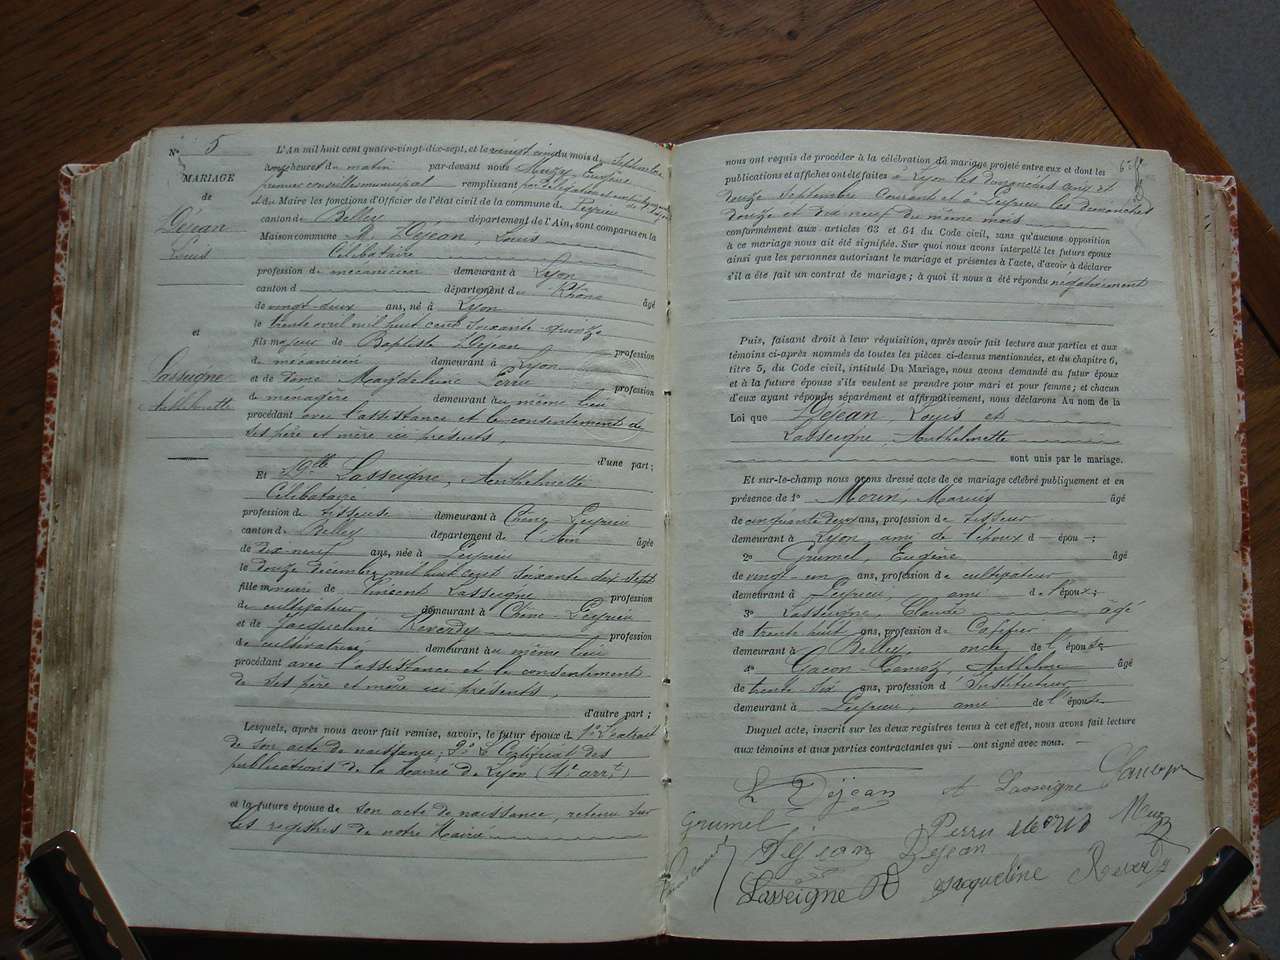 N° 5
MARIAGE
de
Déjean
Louis
et
Lasseigne
Anthelmette
L'An mil huit cent quatre-vingt-dix-sept, et le vingt cinq du mois de Septembre
heures du matin par-devant nous Muzy, Eugène
premier conseiller municipal remplissant par délégation
du Maire les fonctions d'Officier de l'état civil de la commune de Peyrieu
canton de Belley département de l'Ain, sont comparus en la
Maison commune M. Déjean, Louis
Célibataire
profession de mécanicien demeurant à Lyon
canton d département du Rhône âgé
de vingt-deux ans, né à Lyon
le trente avril mil huit cent soixante-quinze
fils majeur de Baptiste Dejean profession
de mécanicien demeurant à Lyon
et de dame Magdeleine Perru profession
de ménagère demeurant au même lieu
procédant avec l'assistance et le consentement de
ses père et mère ici présents,
d'une part ;
Et Dlle Lasseigne, Anthelmette
Célibataire
profession de tisseuse demeurant à Chêne, Peyrieu
canton de Belley département de l'Ain âgée
de dix-neuf ans, née à Peyrieu
le douze décembre mil huit cent soixante dix sept
fille mineure de Vincent Lasseigne profession
de cultivateur demeurant à Chêne Peyrieu
et de Jacqueline Reverdy profession
de cultivatrice demeurant au même lieu
procédant avec l'assistance et le consentement
de ses père et mère ici présents,
d'autre part ;
Lesquels, après nous avoir fait remise, savoir, le futur époux de 1° L'extrait
de son acte de naissance; 2° Le Certificat des
publications de la Mairie de Lyon (4e arrt)
et la future épouse de son acte de naissance, retenu sur
les registres de notre Mairie
nous ont requis de procéder à la célébration du mariage projeté entre eux et dont les
publications et affiches ont été faites à Lyon les dimanches cinq et
douze Septembre courant et à Peyrieu les dimanches
douze et dix neuf du même mois
conformément aux articles 63 et 64 du Code civil, sans qu'aucune opposition
à ce mariage nous ait été signifiée. Sur quoi nous avons interpellé les futurs époux
ainsi que les personnes autorisant le mariage et présentes à l'acte, d'avoir à déclarer
s'il a été fait un contrat de mariage ; à quoi il nous a été répondu négativement
Puis, faisant droit à leur réquisition, après avoir fait lecture aux parties et aux
témoins ci-après nommés de toutes les pièces ci-dessus mentionnées, et du chapitre 6,
titre 5, du Code civil, intitulé Du Mariage, nous avons demandé au futur époux
et à la future épouse s'ils veulent se prendre pour mari et pour femme ; et chacun
d'eux ayant répondu séparément et affirmativement, nous déclarons Au nom de la
Loi que Dejean, Louis et
Lasseigne, Anthelmette
sont unis par le mariage.
Et sur-le-champ nous avons dressé acte de ce mariage célébré publiquement et en
présence de 1° Morin, Marius âgé
de cinquante deux ans, profession de tisseur
demeurant à Lyon, ami de l'époux d — épou — ;
2° Grumel, Eugène âgé
de vingt-un ans, profession de cultivateur
demeurant à Peyrieu, ami de l'époux ;
3° Lasseigne, Claude âgé
de trente huit ans, profession de Cafetier
demeurant à Belley oncle de l'épouse
4° Gacon-Camoz, Anthelme âgé
de trente six ans, profession d'Instituteur
demeurant à Peyrieu, ami de l'épouse
Duquel acte, inscrit sur les deux registres tenus à cet effet, nous avons fait lecture
aux témoins et aux parties contractantes qui — ont signé avec nous. —
L Dejean A Lasseigne
Grumel Perru Morin Muzy
Déjean Dejean
Lasseigne Jacqueline Reverdy